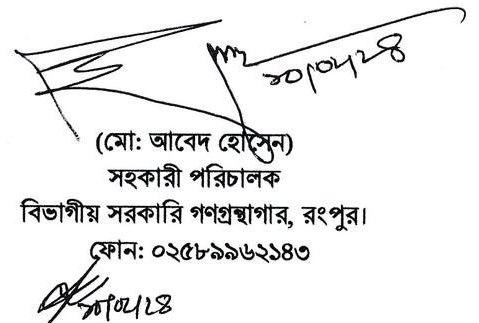 (মো: আবেদ হোসেন)
সহকারী পরিচালক
বিভাগীয় সরকারি গণগ্রন্থাগার, রংপুর।
ফোন: ০২৫৮৯৯৬২১৪৩